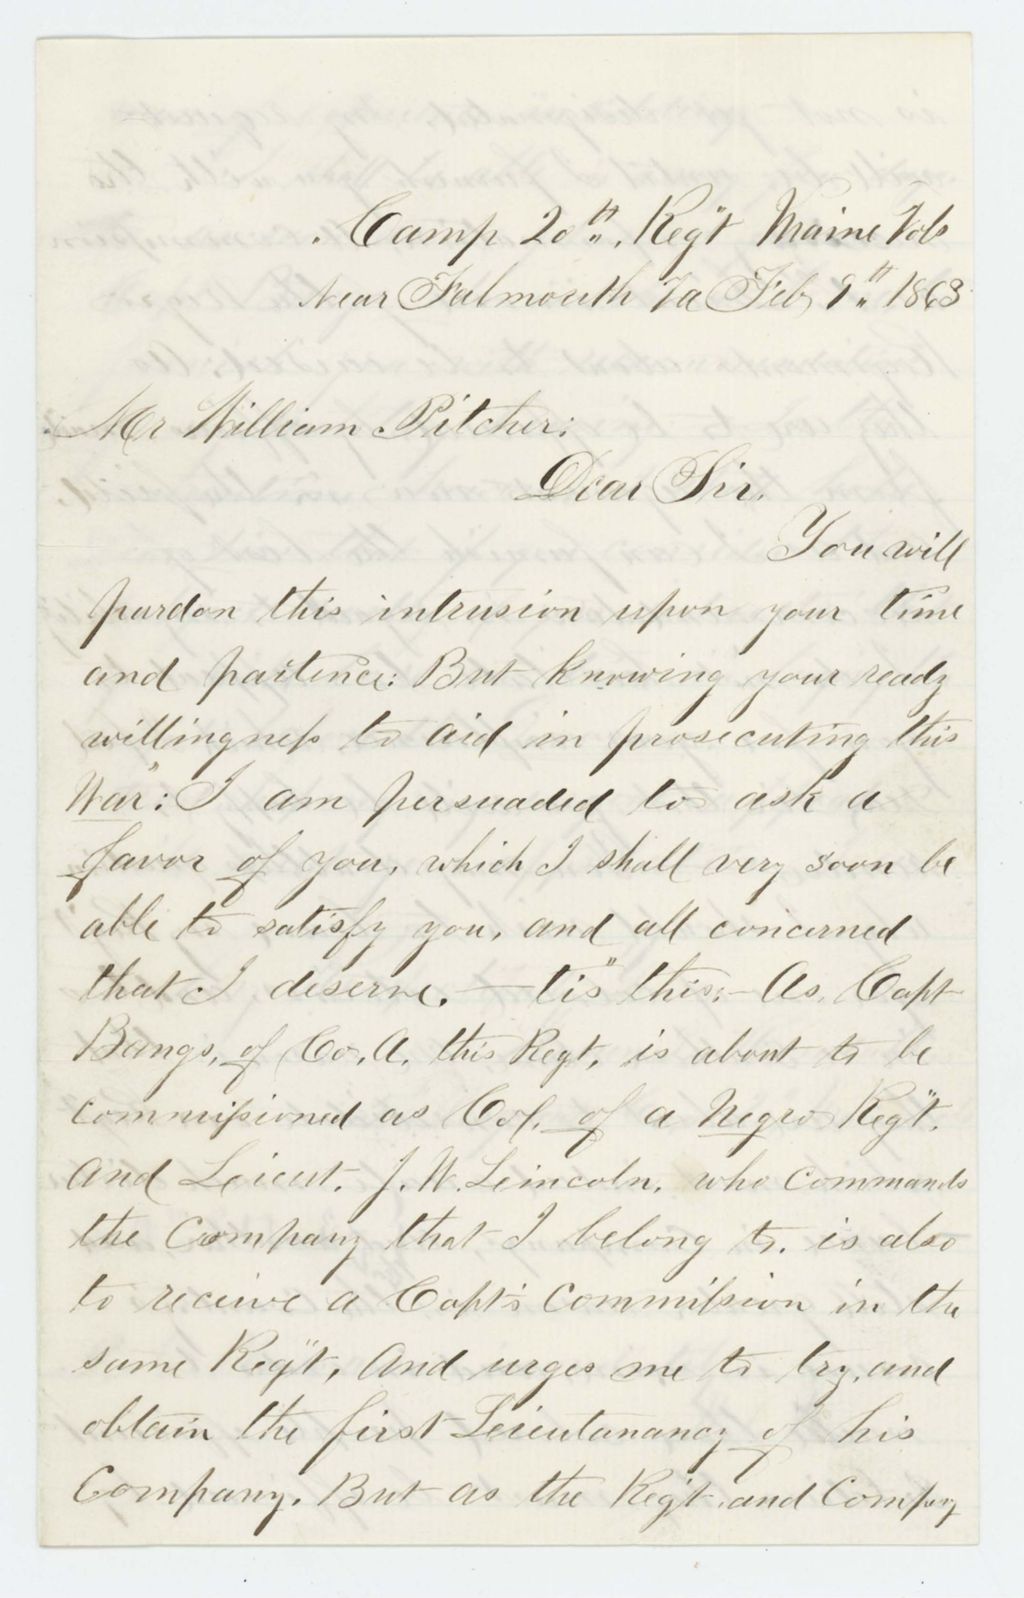 Camp 20th. Reg't Maine Vols
Near Falmouth Va Feb 9th 1863
Mr William Pitcher:
Dear Sir.
You will
pardon this intrusion upon your time
and paitence: But knowing your ready
willingness to aid in prosecuting this
War": I am persuaded to ask a
favor of you, which I shall very soon be
able to satisfy you, and all concerned
that I deserve. — tis" this;- As, Capt
Bangs, of Co. A. this Regt, is about to be
commissioned as Col. of a Negro Reg't.
and Leieut. J. W. Leincoln, who commands
the Company that I belong to. is also
to receive a Capt's Commission in the
same Reg't, And urges me to try, and
obtain the first Leieutanancy of his
Company. But as the Reg't, and Company